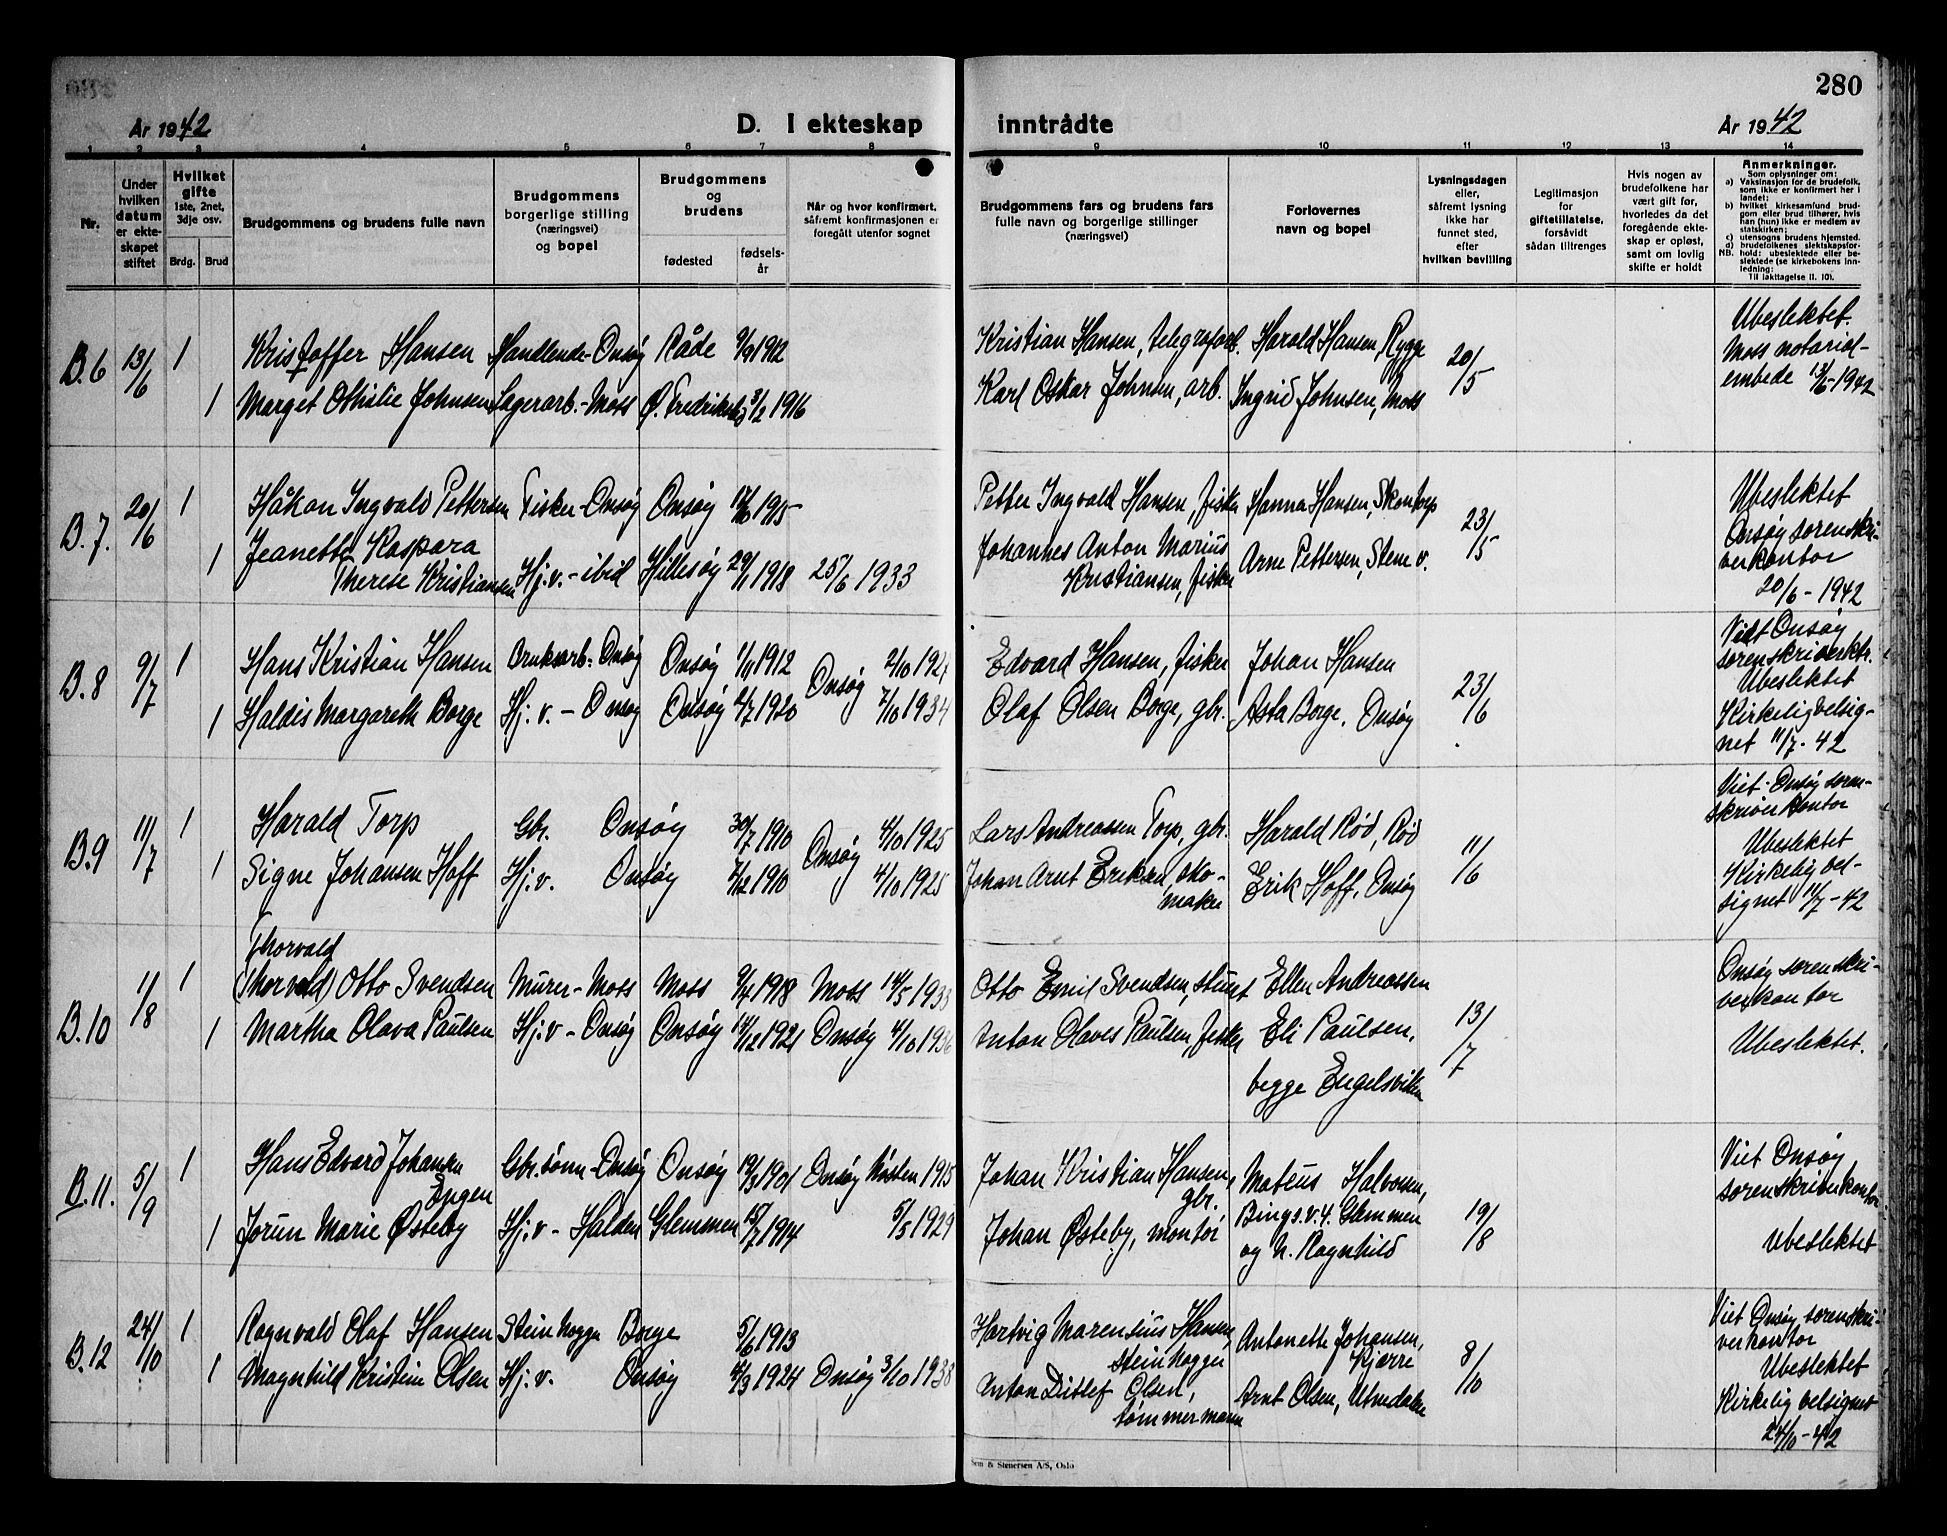 280
År 1942
D. I ekteskap
inntrådte
År 1942
1 2 3 4 5 6 7 8 9 10 11 12 13 14
Nr.
Under
hvilken
datum
er ekte-
skapet
stiftet
Hvilket
gifte
1ste, 2net,
3dje osv.
Brdg. Brud
Brudgommens og brudens fulle navn
Brudgommens
borgerlige stilling
(næringsvei)
og bopel
Brudgommens
og
brudens
fødested
fødsels-
år
Når og hvor konfirmert,
såfremt konfirmasjonen er
foregått utenfor sognet
Brudgommens fars og brudens fars
fulle navn og borgerlige stillinger
(næringsvei)
Forlovernes
navn og bopel
Lysningsdagen
eller,
såfremt lysning
ikke har
funnet sted,
efter
hvilken bevilling
Legitimasjon
for
giftetillatelse,
forsåvidt
sådan tiltrenges
Hvis nogen av
brudefolkene har
vært gift før,
hvorledes da det
foregående ekte-
skap er opløst,
samt om lovlig
skifte er holdt
Anmerkninger.
Som oplysninger om:
a) Vaksinasjon for de brudefolk,
som ikke er konfirmert her i
landet;
b) hvilket kirkesamfund brud-
gom eller brud tilhører, hvis
han (hun) ikke er medlem av
statskirken;
c) utensogns brudens hjemsted.
d) brudefolkenes slektskapsfor-
NB. hold: ubeslektede eller be-
slektede (se kirkebokens inn-
ledning:
Til iakttagelse II. 10).
B.6 13/6 1 Kristoffer Hansen Handlende-Onsøy Råde 9/9 1912 Kristian Hansen, telegrafarb. Harald Hansen, Rygge 20/5
1 Marget Othilie Johnsen Lagerarb.-Moss Ø. Fredrikstad 3/2 1916 Karl Oskar Johnsen, arb. Ingrid Johnsen, Moss
Ubeslektet.
Moss notarial-
embede 13/6-1942
B.7. 20/6 1 Håkon Ingvald Pettersen Fisker-Onsøy Onsøy 1915 Petter Ingvald Hansen, fisker Hanna Hansen, Skontorp 23/5
1 Jeanette Kaspara
Therese Kristiansen Hj.v.-ibid Hillesøy 29/1 1918 25/6 1933 Johannes Anton Marius
Kristiansen, fisker Arne Pettersen, Stene v.
Ubeslektet
Onsøy sorenskri-
verkontor
20/6-1942
B.8 9/7 1 Hans Kristian Hansen Onsøy Onsøy 1/11 1912 Onsøy 2/10 Edvard Hansen, fisker Johan Hansen 23/6
1 Haldis Margareth Borge Hj.v.-Onsøy Onsøy 1920 7/10 1934 Olaf Olsen Borge, gbr. Asta Borge, Onsøy
Viet Onsøy
sorenskriverktr.
Ubeslektet
Kirkelig velsig-
net 11/7-42
B.9 11/7 1 Harald Torp Gbr. Onsøy 30/7 1910 Onsøy 4/10 1925 Lars Andreassen Torp, gbr. Harald Rød, Rød 11/6
1 Signe Johansen Hoff Hj.v. Onsøy 7/12 1910 4/10 1925 Johan Arnt Eriksen, sko-
maker Erik Hoff, Onsøy
Viet Onsøy soren-
skriverkontor
Ubeslektet
Kirkelig vel-
signet 11/7-42
Thorvald
B.10 11/8 1 (Thorvald) Otto Svendsen Murer-Moss Moss 9/4 1918 Moss 14/5 1933 Otto Emil Svendsen, stuert Ellen Andreassen 13/7
1 Martha Olava Paulsen Hj.v-Onsøy Onsøy 14/12 1921 Onsøy 4/10 1936 Anton Olaves Paulsen, fisker Eli Paulsen,
begge Engelsviken
Onsøy sorenskri-
verkontor
Ubeslektet.
B.11. 5/9 1 Hans Edvard Johansen
Engen Gbr.sønn-Onsøy Onsøy 19/3 1901 Onsøy høsten 1915 Johan Kristian Hansen,
gbr. Mateus Halvorsen, 19/8
1 Jorun Marie Østeby Hj.v-Halden Glemmen 15/7 1914 5/5 1929 Johan Østeby, montør Bings.v.4. Glemmen
og h. Ragnhild
Viet Onsøy
sorenskriverkontor
Ubeslektet
B.12 24/10 1 Ragnvald Olaf Hansen Steinhogger Borge 5/6 1913 Hartvig Marensius Hansen,
steinhogger Antonette Johansen,
Kjærre 8/10
1 Magnhild Kristine Olsen Hj.v. Onsøy 4/3 1924 Onsøy 3/10 1938 Anton Ditlef Olsen,
tømmermann Arnt Olsen, Utnedalen
Viet Onsøy sorenskri-
verkontor
Ubeslektet
Kirkelig velsignet
24/10-42
Sem & Stenersen A/S, Oslo